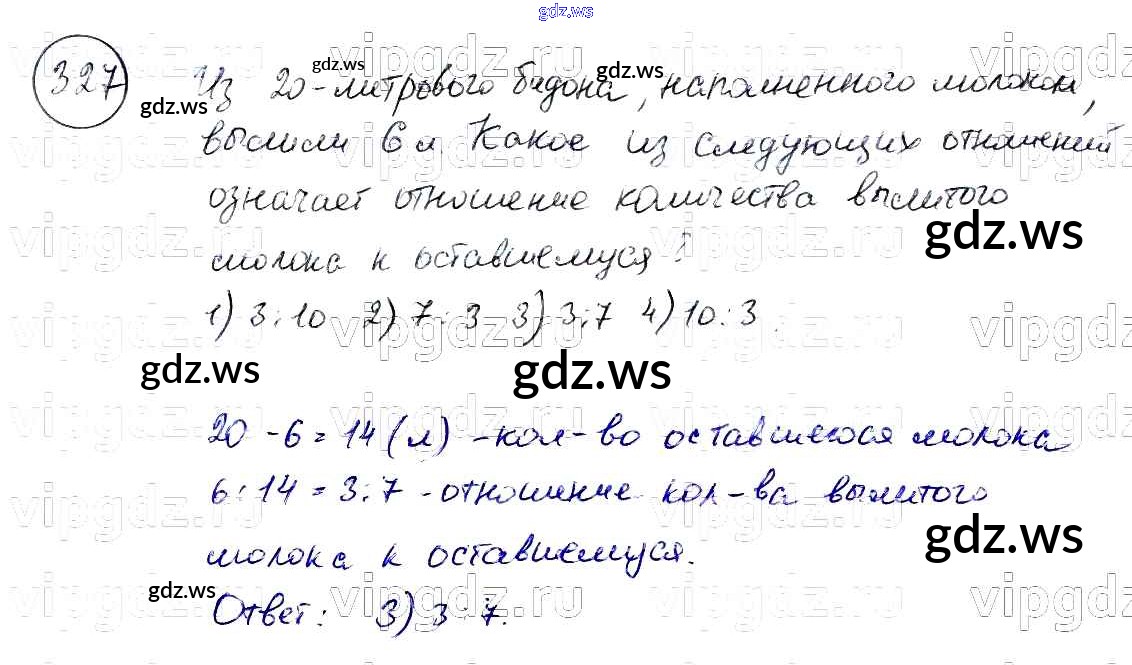 gdz.ws
327 Из 20-литрового бидона, наполненного молоком,
вылили 6 л. Какое из следующих отношений
означает отношение количества вылитого
молока к оставшемуся?
1) 3:10 2) 7:3 3) 3:7 4) 10:3.
20 - 6 = 14 (л) - кол-во оставшегося молока
6:14 = 3:7 - отношение кол-ва вылитого
молока к оставшемуся.
Ответ: 3) 3:7.
gdz.ws
gdz.ws
gdz.ws
gdz.ws
gdz.ws
gdz.ws
gdz.ws
gdz.ws
vipgdz.ru